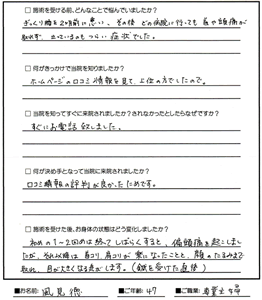 □ 施術を受ける前、どんなことで悩んでいましたか？
ぎっくり腰を2年前に患い、その後どの病院に行っても肩や頭痛が
取れず、立っているのもつらい症状でした。
□ 何がきっかけで当院を知りましたか？
ホームページの口コミ情報を見て、上位の方でしたので。
□ 当院を知ってすぐに来院されましたか？されなかったとしたらなぜですか？
すぐにお電話致しました。
□ 何が決め手となって当院に来院されましたか？
口コミ情報の評判が良かったためです。
□ 施術を受けた後、お身体の状態はどう変化しましたか？
初めの1~2回めは終ってしばらくすると、偏頭痛を起こしまし
たが、それ以降は首コリ、肩コリが楽になったことと、顔のたるみまで
取れ、目が大きくなる気がします。（鍼を受けた直後）
■お名前: 風見 ■ご年齢: 47 ■ご職業: